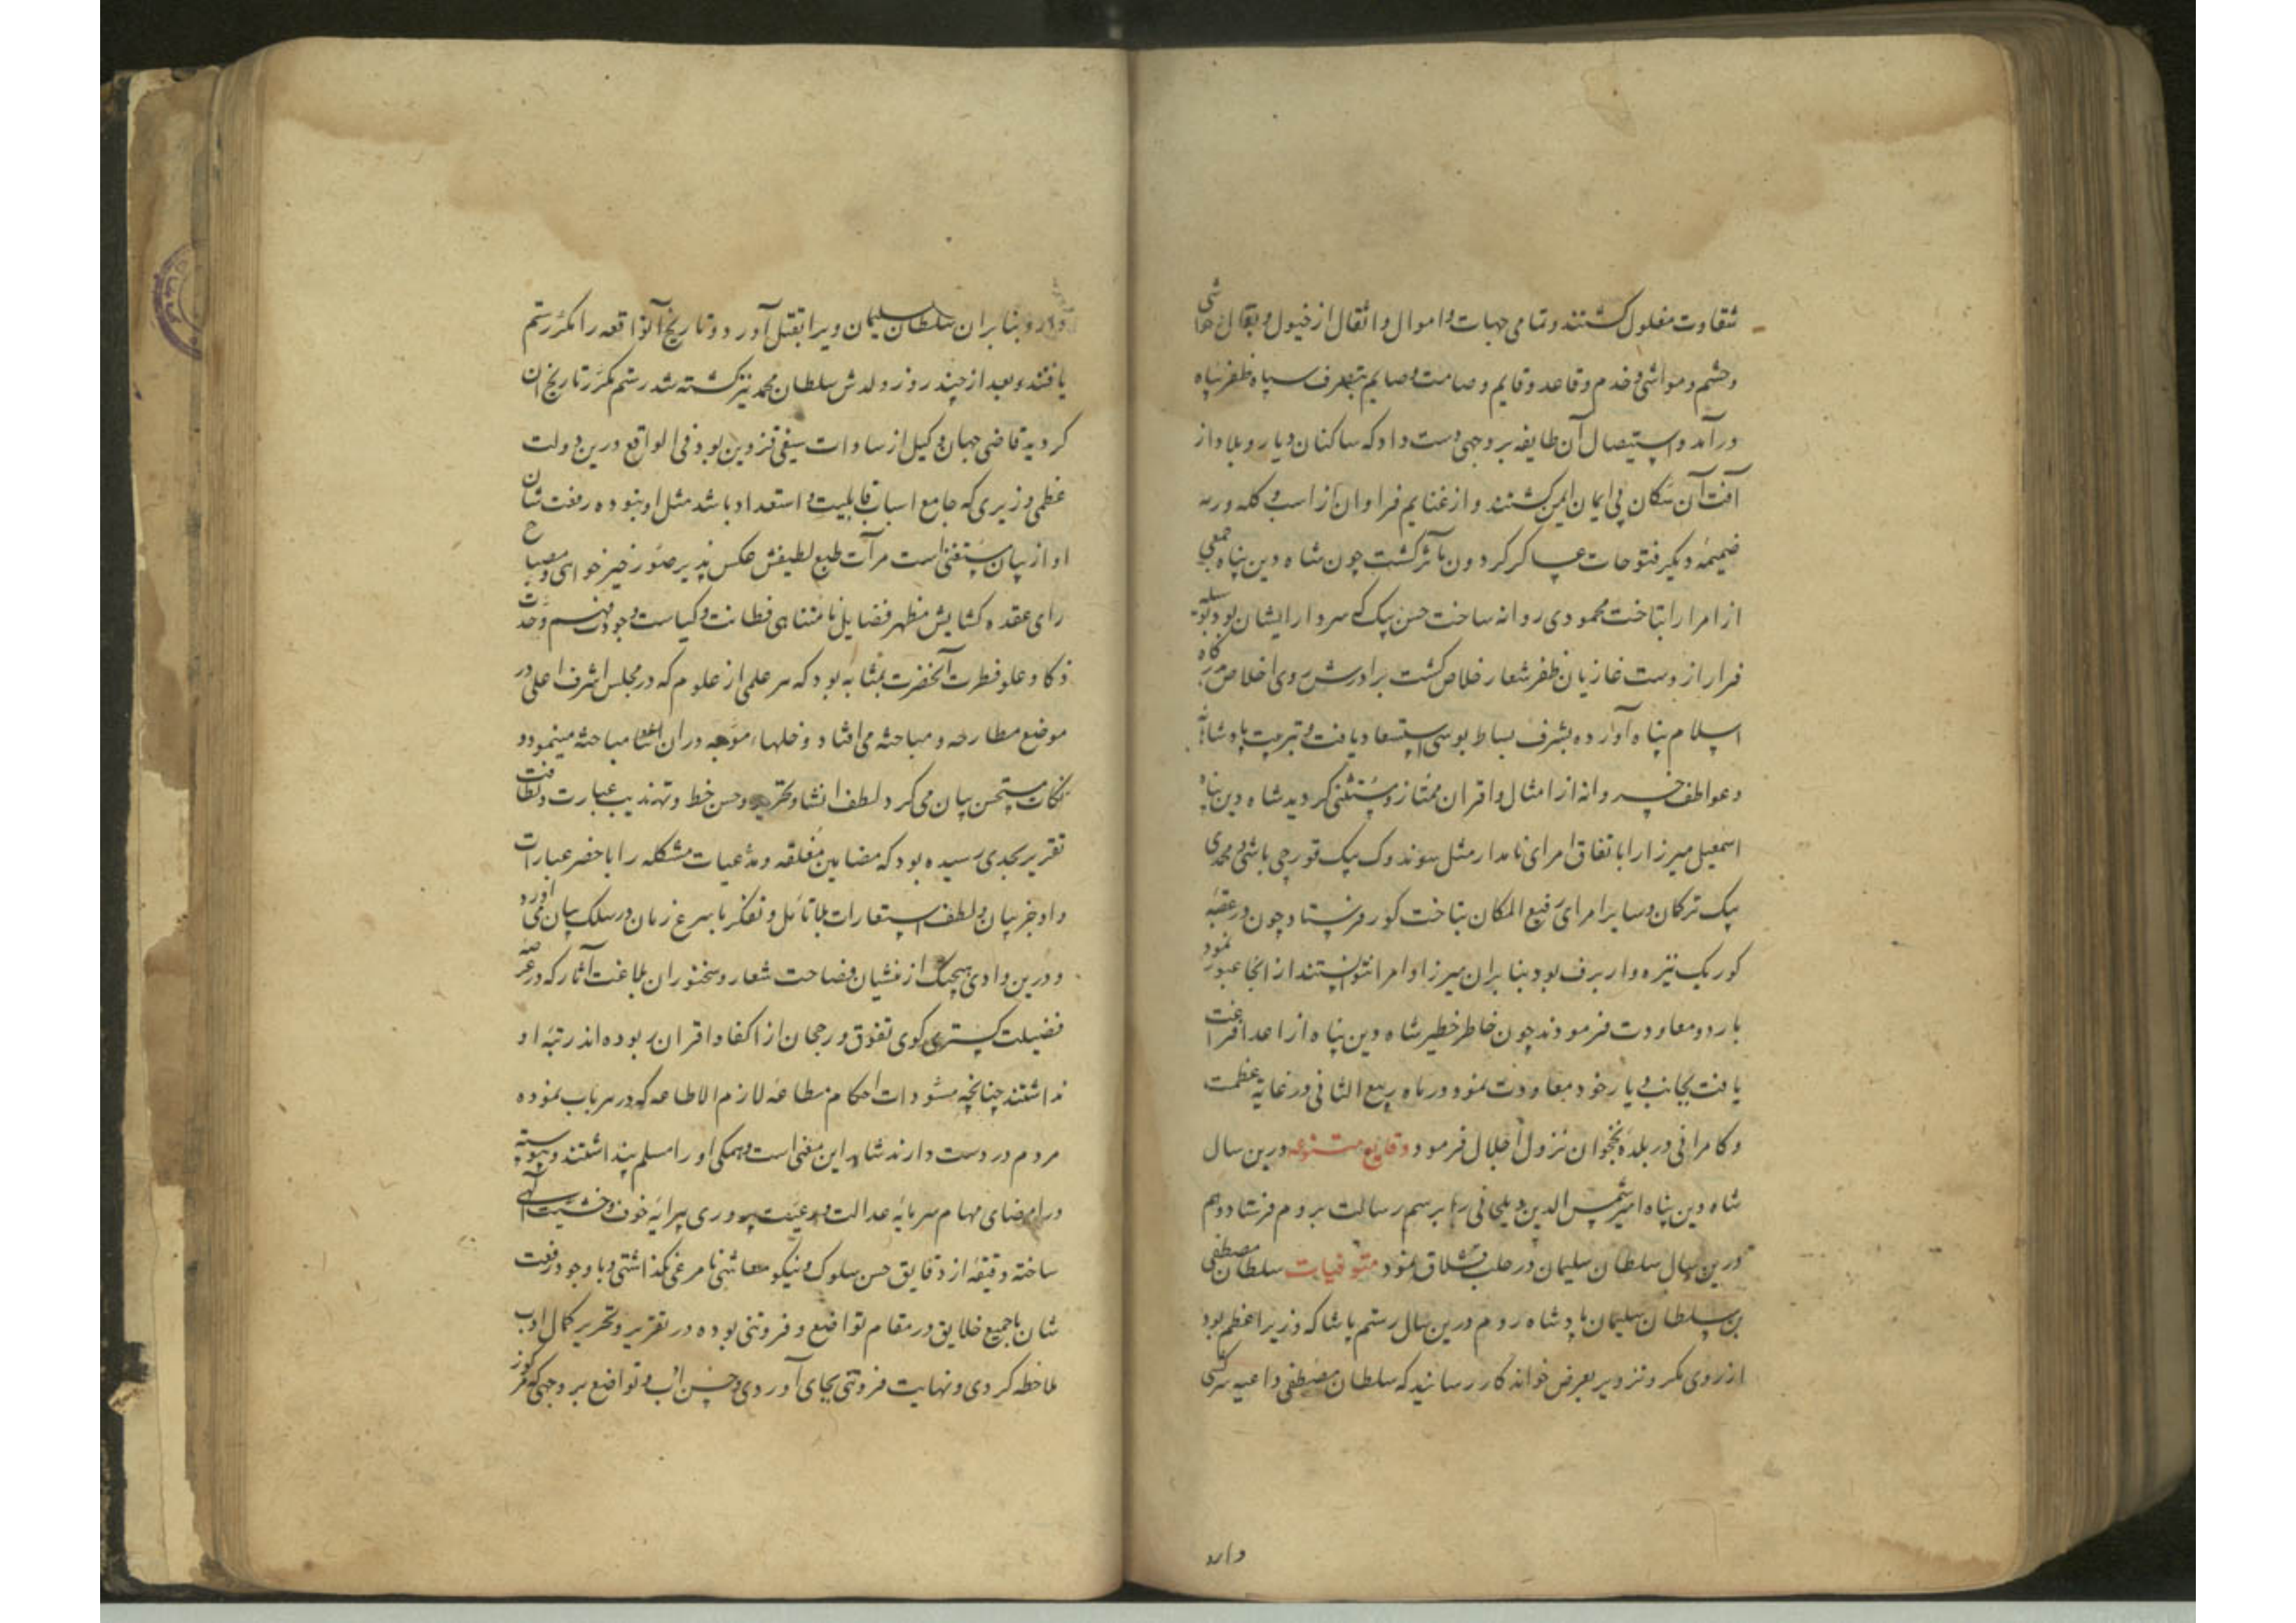 شقاوت مغلول کشتند و تمامی جهات و اموال و اثقال از خیول و بغال و مواشی
و حشم و مواشی و خدم و قاعد و قایم و صامت و صایم بتصرف سپاه ظفر پناه
در آمد و استیصال آن طایفه بر وجهی دست داد که ساکنان دیار و بلاد از
آفت آن سکان بی ایمان ایمن کشتند و از غنایم فراوان از اسب و کله و رمه
ضمیمه دیکر فتوحات عساکر کردون مآثر کشت چون شاه دین پناه جمعی
از امرا را بتاخت محمودی روانه ساخت حسن بیک که سردار ایشان بود
فرار از دست غازیان ظفر شعار خلاص کشت برادرش روی اخلاص بدرکاه
اسلام پناه آورده بشرف بساط بوسی استسعاد یافت و بتربیت پادشاهانه
و عواطف خسروانه از امثال و اقران ممتاز و مستثنی کردید شاه دین پناه
اسمعیل میرزا را باتفاق امرای نامدار مثل سوندوک بیک قورچی باشی و محمدی
بیک ترکان و سایر امرای رفیع المکان بتاخت کور فرستاد چون در عقبه
کور یک نیزه وار برف بود بنا بران میرزا و امرا نتوانستند از انجا عبور نمود
باردو معاودت فرمودند چون خاطر خطیر شاه دین پناه از اعدا فراغت
یافت بجانب دیار خود معاودت نمود و در ماه ربیع الثانی در غایة عظمت
و کامرانی در بلده نخجوان نزول اجلال فرمود وقایع متنوعه درین سال
شاه دین پناه امیر شمس الدین دیلجانی را برسم رسالت بروم فرستاد و هم
درین سال سلطان سلیمان در حلب قشلاق نمود متوفیات سلطان مصطفی
بن سلطان سلیمان پادشاه روم درین سال رستم پاشا که وزیر اعظم بود
از روی مکر و تزویر بعرض خواندکار رسانید که سلطان مصطفی داعیه سرکشی
دارد
دارد و بنا بران سلطان سلیمان ویرا بقتل آورد و تاریخ آنواقعه را مکر رستم
یافتند و بعد از چند روز ولدش سلطان محمد نیز کشته شد رستم مکرر تاریخ ان
کردید قاضی جهان وکیل از سادات سیفی قزوین بود فی الواقع درین دولت
عظمی وزیری که جامع اسباب قابلیت و استعداد باشد مثل او نبوده رفعت شان
او از بیان مستغنی است مرآت طبع لطیفش عکس پذیر صور خیر خواهی و مصباح
رای عقده کشایش مظهر فضایل نامتناهی فطانت و کیاست و جودت فهم و حدت
ذکا و علو فطرت آنحضرت بمثابه بود که هر علمی از علوم که در مجلس اشرف اعلی در
موضع مطارحه و مباحثه می افتاد و دخلهاء موجه دران اثنا مباحثه مینمود و
نکات مستحسن بیان می کرد و لطف انشا و تحریر و حسن خط و تهذیب عبارت و لطافت
تقریر بحدی رسیده بود که مضامین مغلقه و مدعیات مشکله را باخصر عبارات
و اوجز بیان و لطف استعارات بلا تامل و تفکر باسرع زمان در سلک بیان می آورد
و درین وادی هیچیک از منشیان فصاحت شعار و سخنوران بلاغت آثار که در عرصه
فضیلت کستری کوی تفوق و رجحان از اکفا و اقران ربوده اند رتبه او
نداشتند چنانچه مسودات احکام مطاعه لازم الاطاعه که در هر باب نموده
مردم در دست دارند شاهد این معنی است و همکی او را مسلم پنداشتند و پیوسته
در امضای مهام سرمایه عدالت و رعیت پروری پیرایه خوف و خشیت الهی
ساخته دقیقه از دقایق حسن سلوک و نیکو معاشی نامرعی نکذاشتی و با وجود رفعت
شان با جمیع خلایق در مقام تواضع و فروتنی بوده در تقریر و تحریر کمال ادب
ملاحظه کردی و نهایت فروتنی بجای آوردی و حسن ادب و تواضع بر وجهی که هرکز